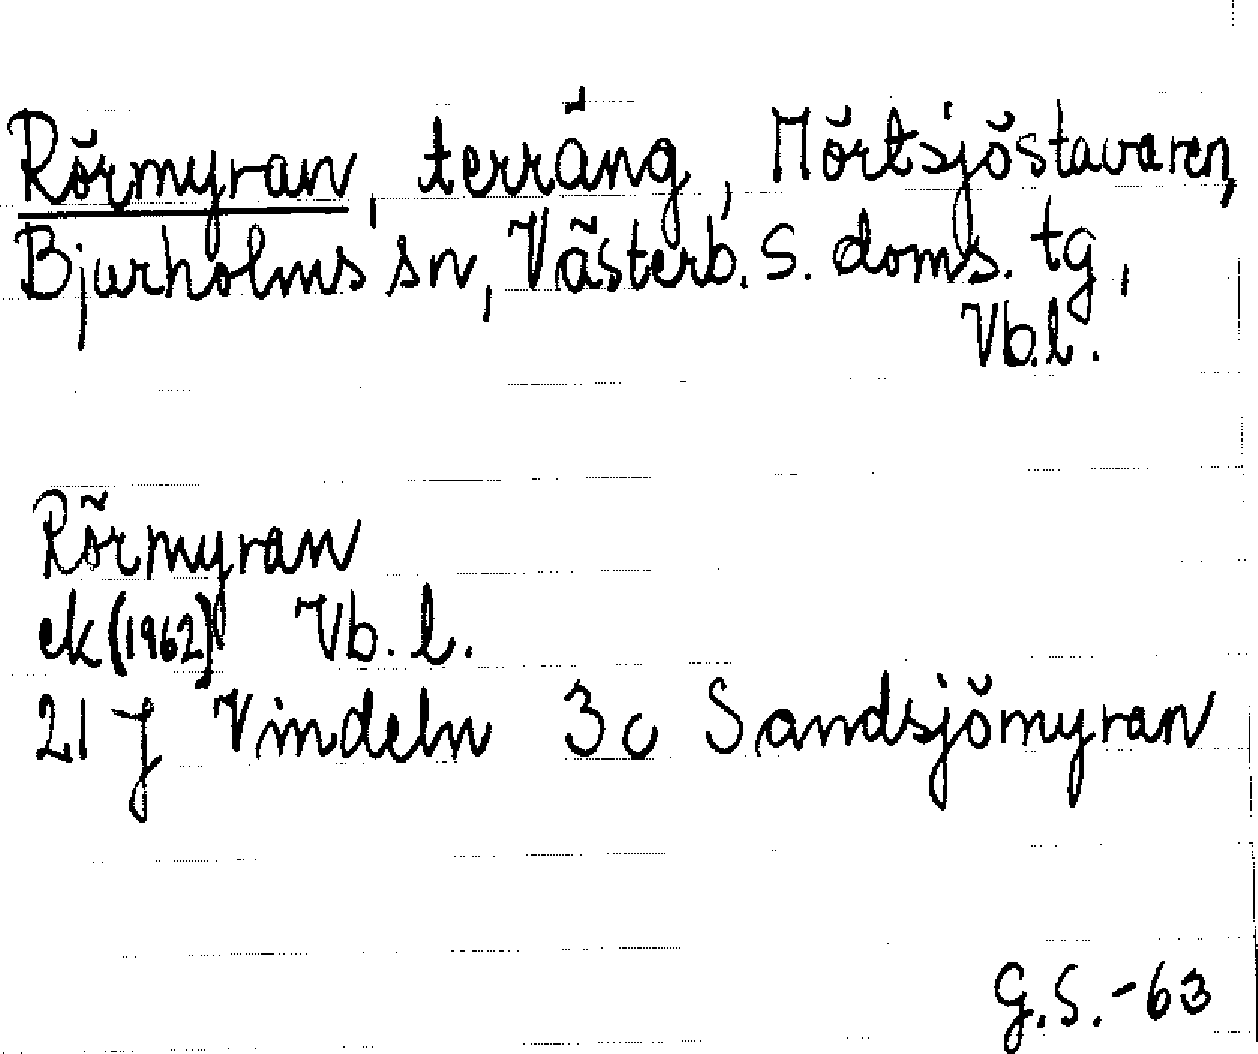 Rörmyran, terräng, Mörtsjöstavaren,
Bjurholms sn, Västerb. S. doms. tg,
Vb.l.
Rörmyran
ek (1962) Vb. l.
21 J Vindeln 3c Sandsjömyran
G.S.-63